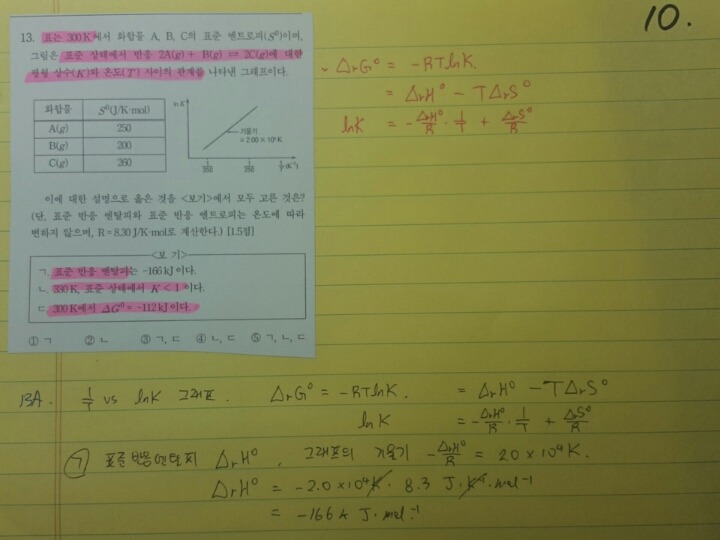 10.
13. 표는 300 K에서 화합물 A, B, C의 표준 엔트로피(S⁰)이며,
그림은 표준 상태에서 반응 2A(g) + B(g) ⇌ 2C(g)에 대한
평형 상수(K)와 온도(T) 사이의 관계를 나타낸 그래프이다.
화합물 S⁰(J/K·mol)
A(g) 250
B(g) 200
C(g) 260
ln K
기울기
= 2.00 × 10⁴ K
1/T (K⁻¹)
이에 대한 설명으로 옳은 것을 <보기>에서 모두 고른 것은?
(단, 표준 반응 엔탈피와 표준 반응 엔트로피는 온도에 따라
변하지 않으며, R = 8.30 J/K·mol로 계산한다.) [1.5점]
<보 기>
ㄱ. 표준 반응 엔탈피는 -166 kJ 이다.
ㄴ. 350 K, 표준 상태에서 K < 1 이다.
ㄷ. 300 K에서 ΔG⁰ = -112 kJ 이다.
① ㄱ ② ㄴ ③ ㄱ, ㄷ ④ ㄴ, ㄷ ⑤ ㄱ, ㄴ, ㄷ
ΔrG⁰ = -RTlnK.
= ΔrH⁰ - TΔrS⁰
lnK = -ΔrH⁰/R · 1/T + ΔrS⁰/R
13A. 1/T vs lnK 그래프. ΔrG⁰ = -RTlnK. = ΔrH⁰ - TΔrS⁰
lnK = -ΔrH⁰/R · 1/T + ΔrS⁰/R
ㄱ 표준반응엔탈피 ΔrH⁰. 그래프의 기울기 -ΔrH⁰/R = 2.0 × 10⁴ K.
ΔrH⁰ = -2.0 × 10⁴ K · 8.3 J · K⁻¹ · mol⁻¹
= -166 k J · mol⁻¹